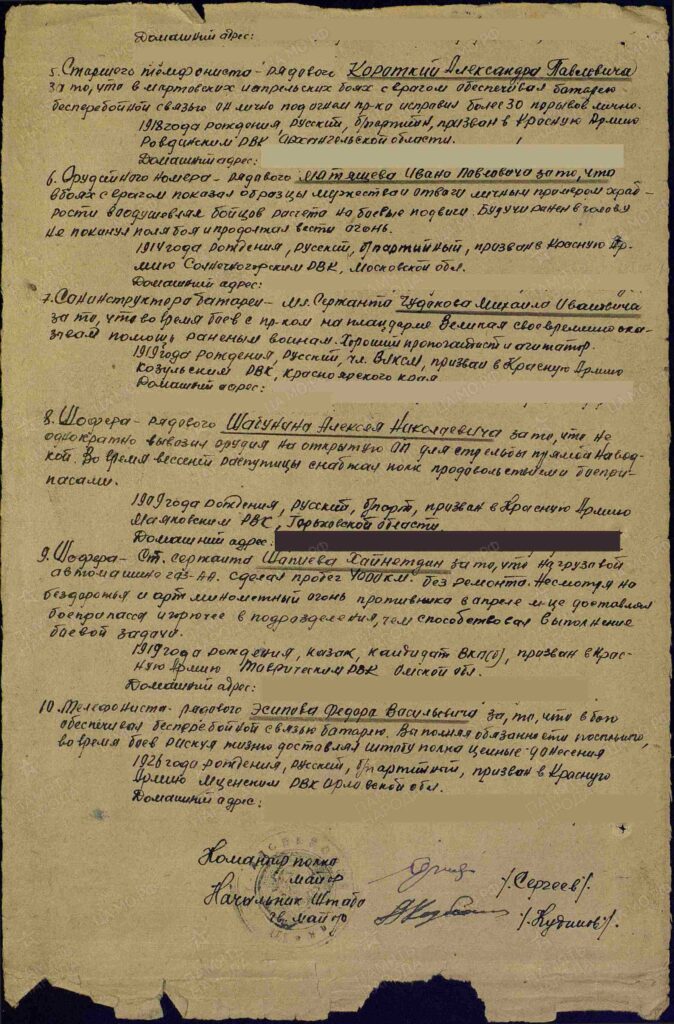 Домашний адрес:
5. Старшого телефониста - рядового Короткий Александра Павловича
за то, что в мартовских и апрельских боях с врагом обеспечивал батарею
бесперебойной связью он лично под огнем пр-ка исправил более 30 порывов лично.
1918 года рождения, русский, б/партийн, призван в Красную Армию
Ровдинским РВК Архангельской области.
Домашний адрес:
6. Орудийного номера - рядового Мятящева Ивана Павловича за то, что
в боях с врагом показал образцы мужества и отваги личным примером храб-
рости воодушевлял бойцов расчета на боевые подвиги. Будучи ранен в голову
не покинул поля боя и продолжал вести огонь.
1914 года рождения, русский, б/партийный, призван в Красную Ар-
мию Солнечногорским РВК, Московской обл.
Домашний адрес:
7. Санинструктора батареи - мл. Сержанта Чудакова Михаила Ивановича
за то, что во время боев с пр-ком на плацдарме Великая своевременно ока-
зывал помощь раненым воинам. Хороший пропогандист и агитатор.
1919 года рождения, русский, чл. ВЛКСМ, призван в Красную Армию
Козульским РВК, красноярского края
Домашний адрес:
8. Шофера - рядового Шагунина Алексея Николаевича за то, что не
однократно вывозил орудия на открытую ОП для стрельбы прямой навод-
кой. Во время весеней распутицы снабжал полк продовольствием и боепри-
пасами.
1909 года рождения, русский, б/парт, призван в Красную Армию
Маяковским РВК, Горьковской области
Домашний адрес:
9. Шофера - Ст. сержанта Шапиева Хайнетдин за то, что на грузовой
автомашине газ-АА. сделал пробег 4000 км. без ремонта. Несмотря на
бездорожья и арт минометный огонь противника в апреле м-це доставлял
боеприпасса и горючее в подразделения, чем способствовал выполнение
боевой задачи.
1919 года рождения, казак, кандидат ВКП(б), призван в Крас-
ную Армию Таврическим РВК Омской обл.
Домашний адрес:
10. Телефониста - рядового Эсипова Федора Васильевича за, то, что в бою
обеспечивал бесперебойной связью батарею. Выполняя обязанности посыльного,
во время боев рискуя жизнью доставлял штабу полка ценные донесения
1926 года рождения, русский, б/партийный, призван в Красную
Армию Мценским РВК Орловской обл.
Домашний адрес:
Командир полка
гв. майор /.Сергеев/.
Начальник Штаба
гв. майор /.Кудинов/.